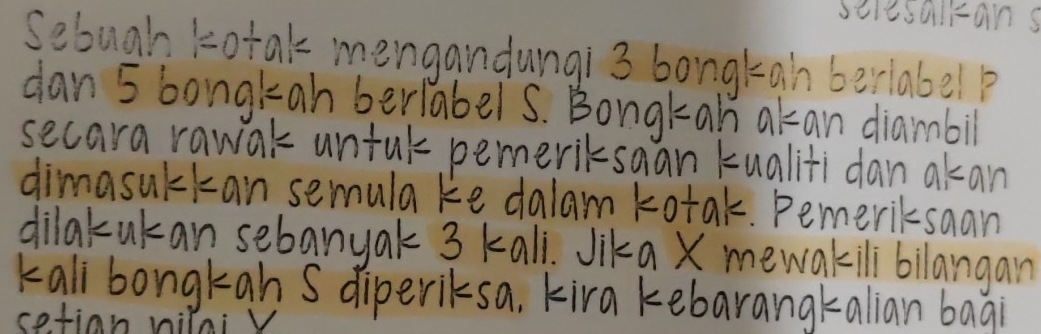 selesaikan s
Sebuah kotak mengandungi 3 bongkah berlabel P
dan 5 bongkah berlabel S. Bongkah akan diambil
secara rawak untuk pemeriksaan kualiti dan akan
dimasukkan semula ke dalam kotak. Pemeriksaan
dilakukan sebanyak 3 kali. Jika X mewakili bilangan
kali bongkah S diperiksa, kira kebarangkalian bagi
setiap nilai X